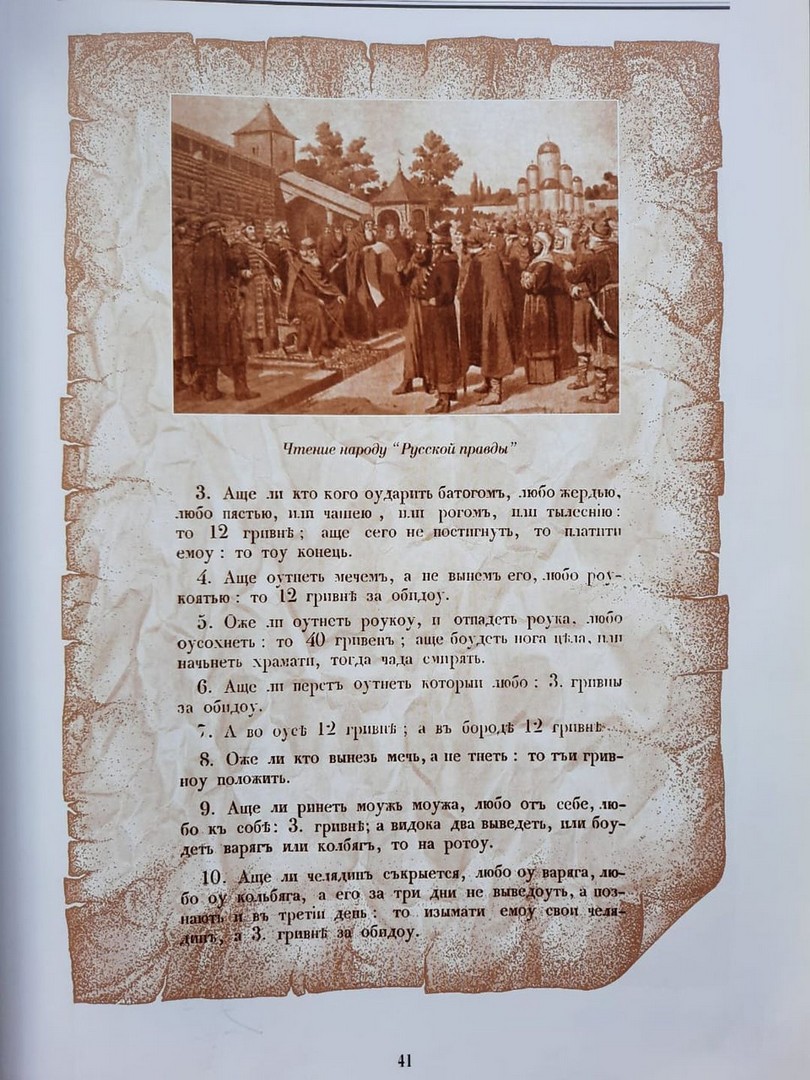 Чтение народу “Русской правды”
3. Аще ли кто кого оударить батогомъ, любо жердью,
любо пястью, или чашею , или рогомъ, или тылеснію :
то 12 гривнѣ ; аще сего не постигнуть, то платити
емоу : то тоу конець.
4. Аще оутнеть мечемъ, а не вынемъ его, любо роу-
коятью : то 12 гривнѣ за обидоу.
5. Оже ли оутнеть роукоу, и отпадеть роука, любо
оусохнеть : то 40 гривенъ ; аще боудеть нога цѣла, или
начьнеть храмати, тогда чада смирять.
6. Аще ли перстъ оутнеть которыи любо : 3. гривны
за обидоу.
7. А во оусѣ 12 гривнѣ ; а въ бородѣ 12 гривнѣ.
8. Оже ли кто вынезь мечь, а не тнеть : то тъи грив-
ноу положить.
9. Аще ли ринеть моужь моужа, любо отъ себе, лю-
бо къ собѣ : 3. гривнѣ; а видока два выведеть, или боу-
деть варягъ или колбягъ, то на ротоу.
10. Аще ли челядинъ съкрыется, любо оу варяга, лю-
бо оу кольбяга, а его за три дни не выведоуть, а поз-
нають и въ третіи день : то изымати емоу свои челя-
динъ, а 3. гривнѣ за обидоу.
41